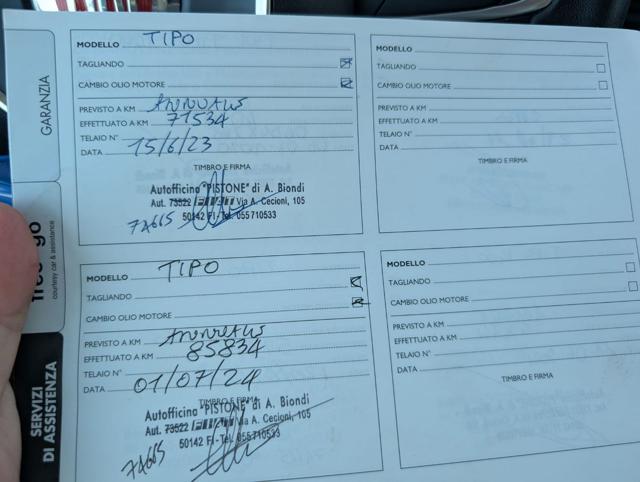 GARANZIA
MODELLO TIPO
TAGLIANDO
CAMBIO OLIO MOTORE
PREVISTO A KM ANNUALE
EFFETTUATO A KM 71534
TELAIO N°
DATA 15/6/23
TIMBRO E FIRMA
Autofficina "PISTONE" di A. Biondi
Aut. 73522 Via A. Cecioni, 105
50142 FI - Tel. 055 710533
MODELLO
TAGLIANDO
CAMBIO OLIO MOTORE
PREVISTO A KM
EFFETTUATO A KM
TELAIO N°
DATA
TIMBRO E FIRMA
courtesy car & assistance
SERVIZI
DI ASSISTENZA
MODELLO TIPO
TAGLIANDO
CAMBIO OLIO MOTORE
PREVISTO A KM ANNUALE
EFFETTUATO A KM 85834
TELAIO N°
DATA 01/07/24
TIMBRO E FIRMA
Autofficina "PISTONE" di A. Biondi
Aut. 73522 Via A. Cecioni, 105
50142 FI - Tel. 055 710533
MODELLO
TAGLIANDO
CAMBIO OLIO MOTORE
PREVISTO A KM
EFFETTUATO A KM
TELAIO N°
DATA
TIMBRO E FIRMA